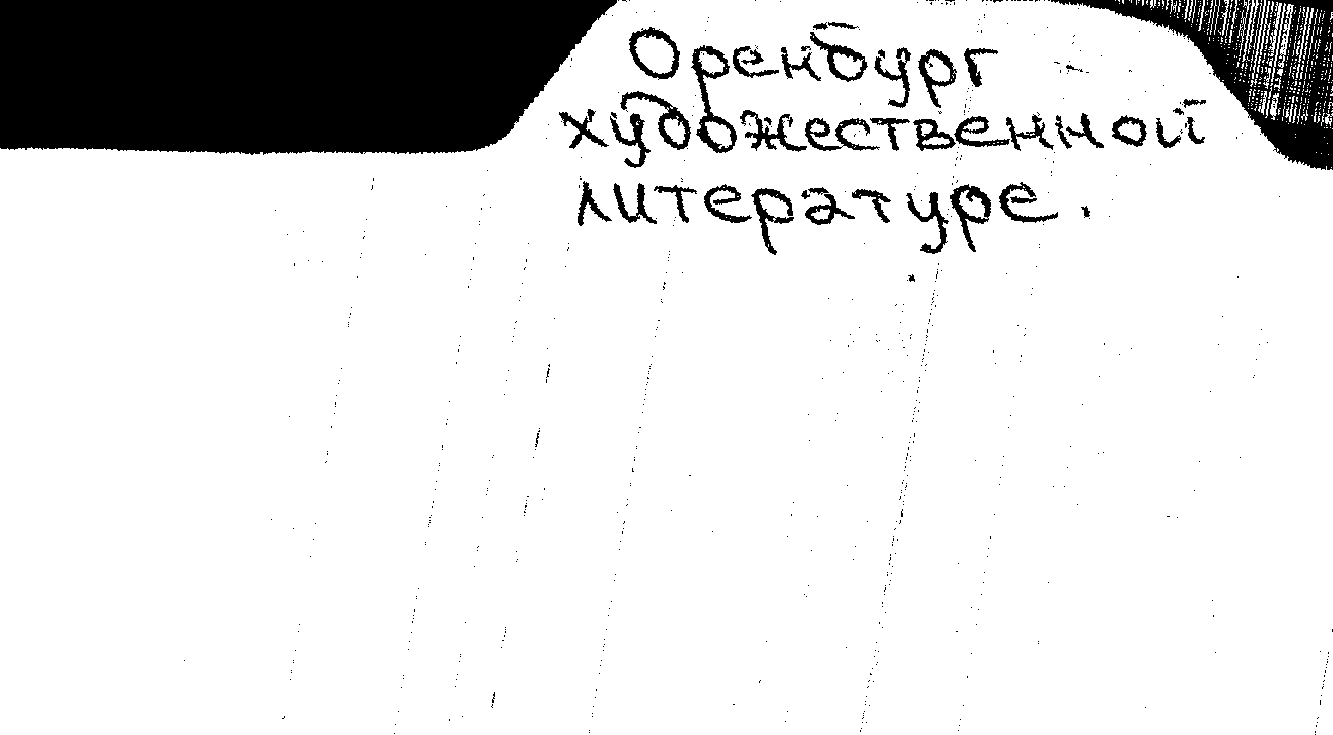 Оренбург
художественной
литературе.